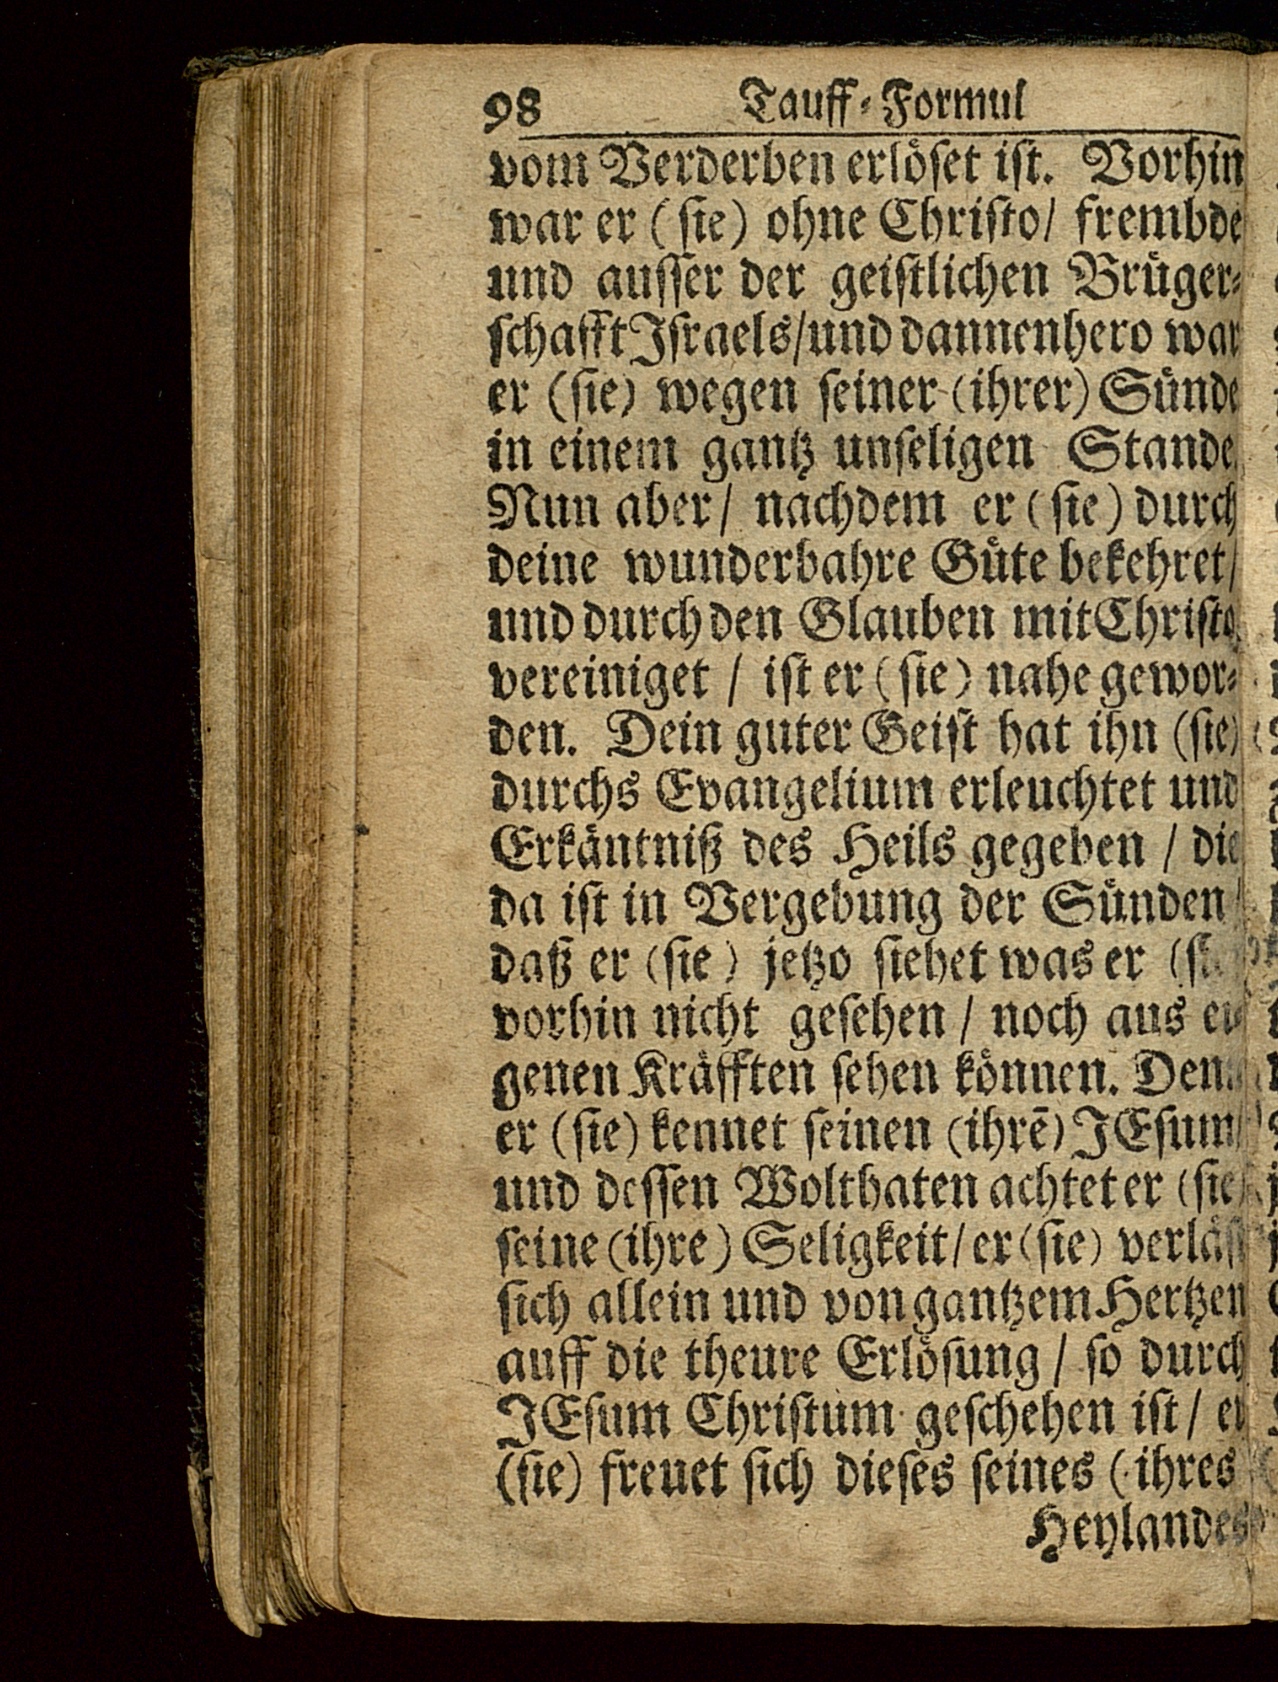 98 Tauff-Formul
vom Verderben erlöset ist. Vorhin
war er (sie) ohne Christo/ frembde
und ausser der geistlichen Brüger-
schafft Israels/und dannenhero war
er (sie) wegen seiner (ihrer) Sünde
in einem gantz unseligen Stande
Nun aber/ nachdem er (sie) durch
deine wunderbahre Güte bekehret/
und durch den Glauben mit Christo
vereiniget / ist er (sie) nahe gewor-
den. Dein guter Geist hat ihn (sie)
durchs Evangelium erleuchtet und
Erkäntniß des Heils gegeben / die
da ist in Vergebung der Sünden/
daß er (sie) jetzo siehet was er
vorhin nicht gesehen / noch aus ei-
genen Kräfften sehen können. Den
er (sie) kennet seinen (ihrē) JEsum
und dessen Wolthaten achtet er (sie)
seine (ihre) Seligkeit/ er (sie) verläst
sich allein und von gantzem Hertzen
auff die theure Erlösung / so durch
JEsum Christum geschehen ist / er
(sie) freuet sich dieses seines (ihres
Heylandes